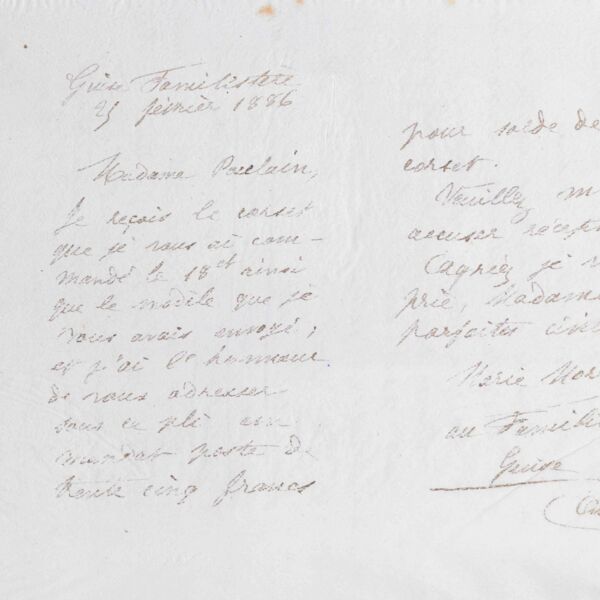 Guise Familistère
25 février 1886
Madame Poulain,
Je reçois le corset
que je vous ai com-
mandé le 18 ct ainsi
que le modèle que je
vous avais envoyé ;
et j'ai l'honneur
de vous adresser
sous ce pli un
mandat poste de
trente cinq francs
pour solde de
corset.
Veuillez m
accuser récept
Agréez je v
prie, Madame
parfaites civi
Marie Mor
au Famili
Guise